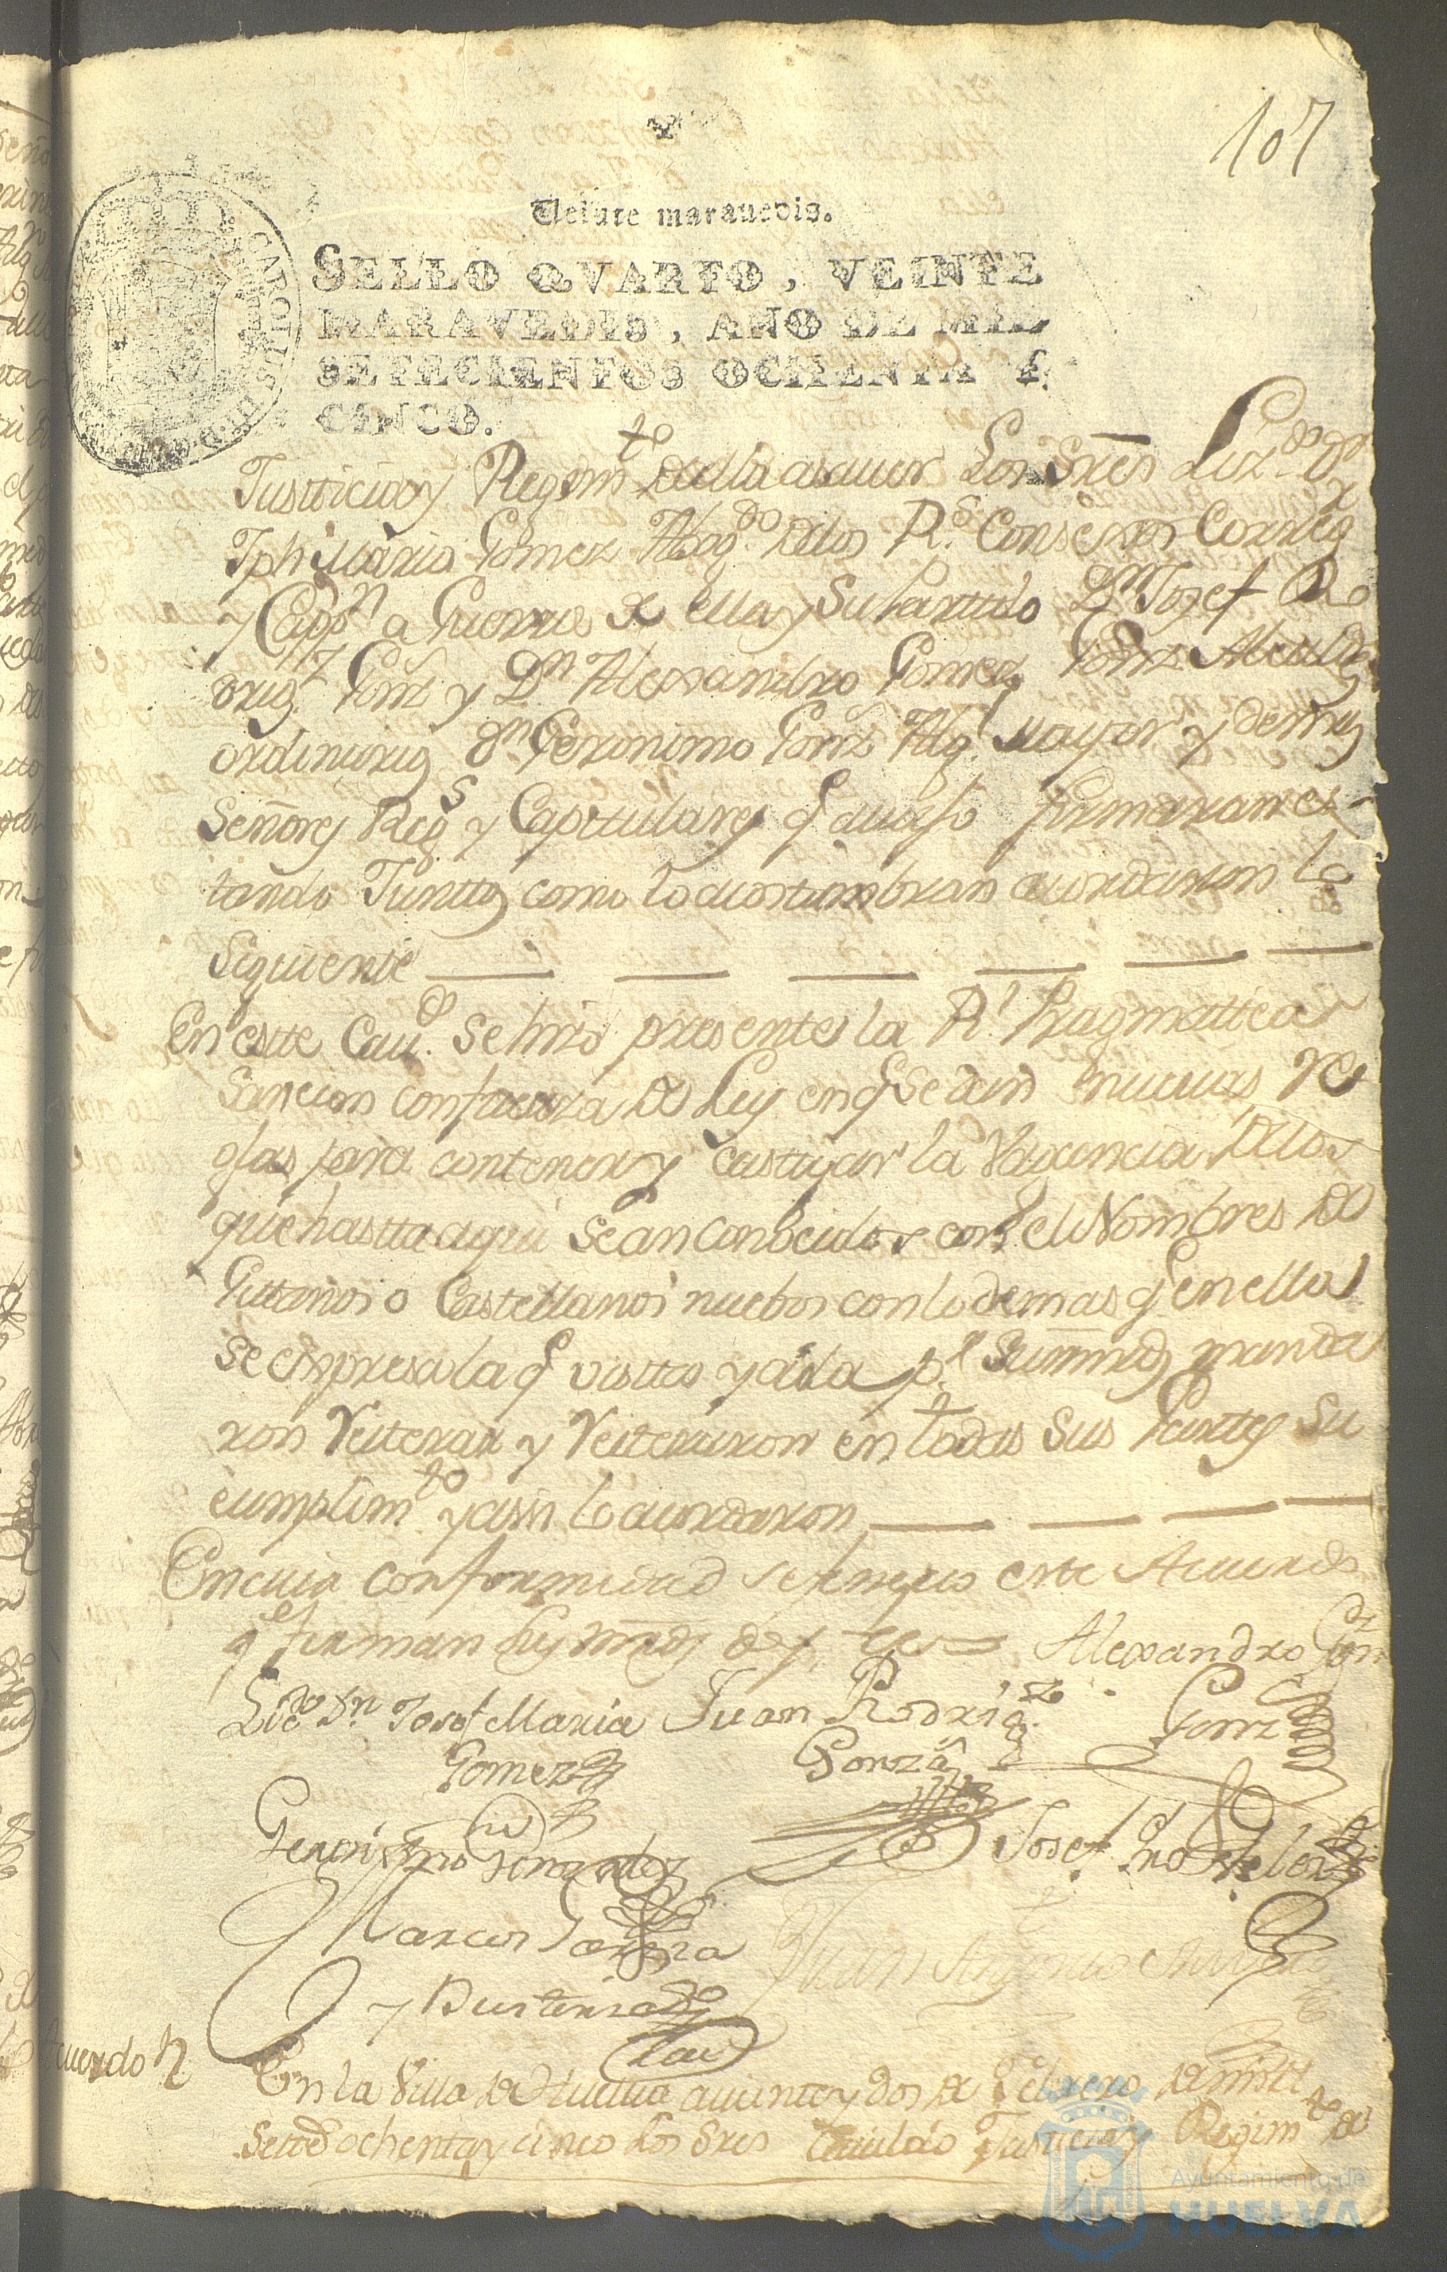 107
Veinte maravedis.
SELLO QVARTO, VEINTE
MARAVEDIS, AÑO DE MIL
SETECIENTOS OCHENTA Y
CINCO.
Justticia y Regim.to de ella a saver Los Sres Liz.do Dn
Jph Maria Gomez Abog.do delos R.s Consejos Correg.
y Capp.n a Guerra de ella y su Partido Dn Josef R
Gonz y Dn Alexandro Gomez Gonz Alcaldes
ordinarios Dn Geronimo Gonz Alg.l mayor y demas
Señores Reg.s y Capitulares q avajo firmaran es-
tando Juntos como lo acostumbran acordaron lo
Siguiente
En este Cav.do se hizo presente la R.l Pragmattica
Sancion con fuerza de Ley en q se dan nuevas re
glas para contener y castigar la Vagancia delos
que hasta aqui se an conocido con el Nombres de
Gittanos o Castellanos nuebos con lo demas q en ella
se expresa la q vistta y oida p.r Sus mrds manda
ron Reiterar y Reiteraron en todas sus Partes su
cumplim.to y assi lo acordaron
En cuia conformidad se fenecio este Acuerdo
q.e firman sus mrds doy fee = Alexandro Gom
Lic.do Dn Josef Maria Juan Rodrig.z Gonz
Gomez Gonz
Geronimo Fernandez Josef
Marcos Garzia Juan Antonio
y Bustenza
Acuerdo En la Villa de Huelva a veinte y dos de Febrero de mill
Sett.os ochenta y cinco los Sres Cavildo Justicia y Regim.to de
Ayuntamiento de
HUELVA